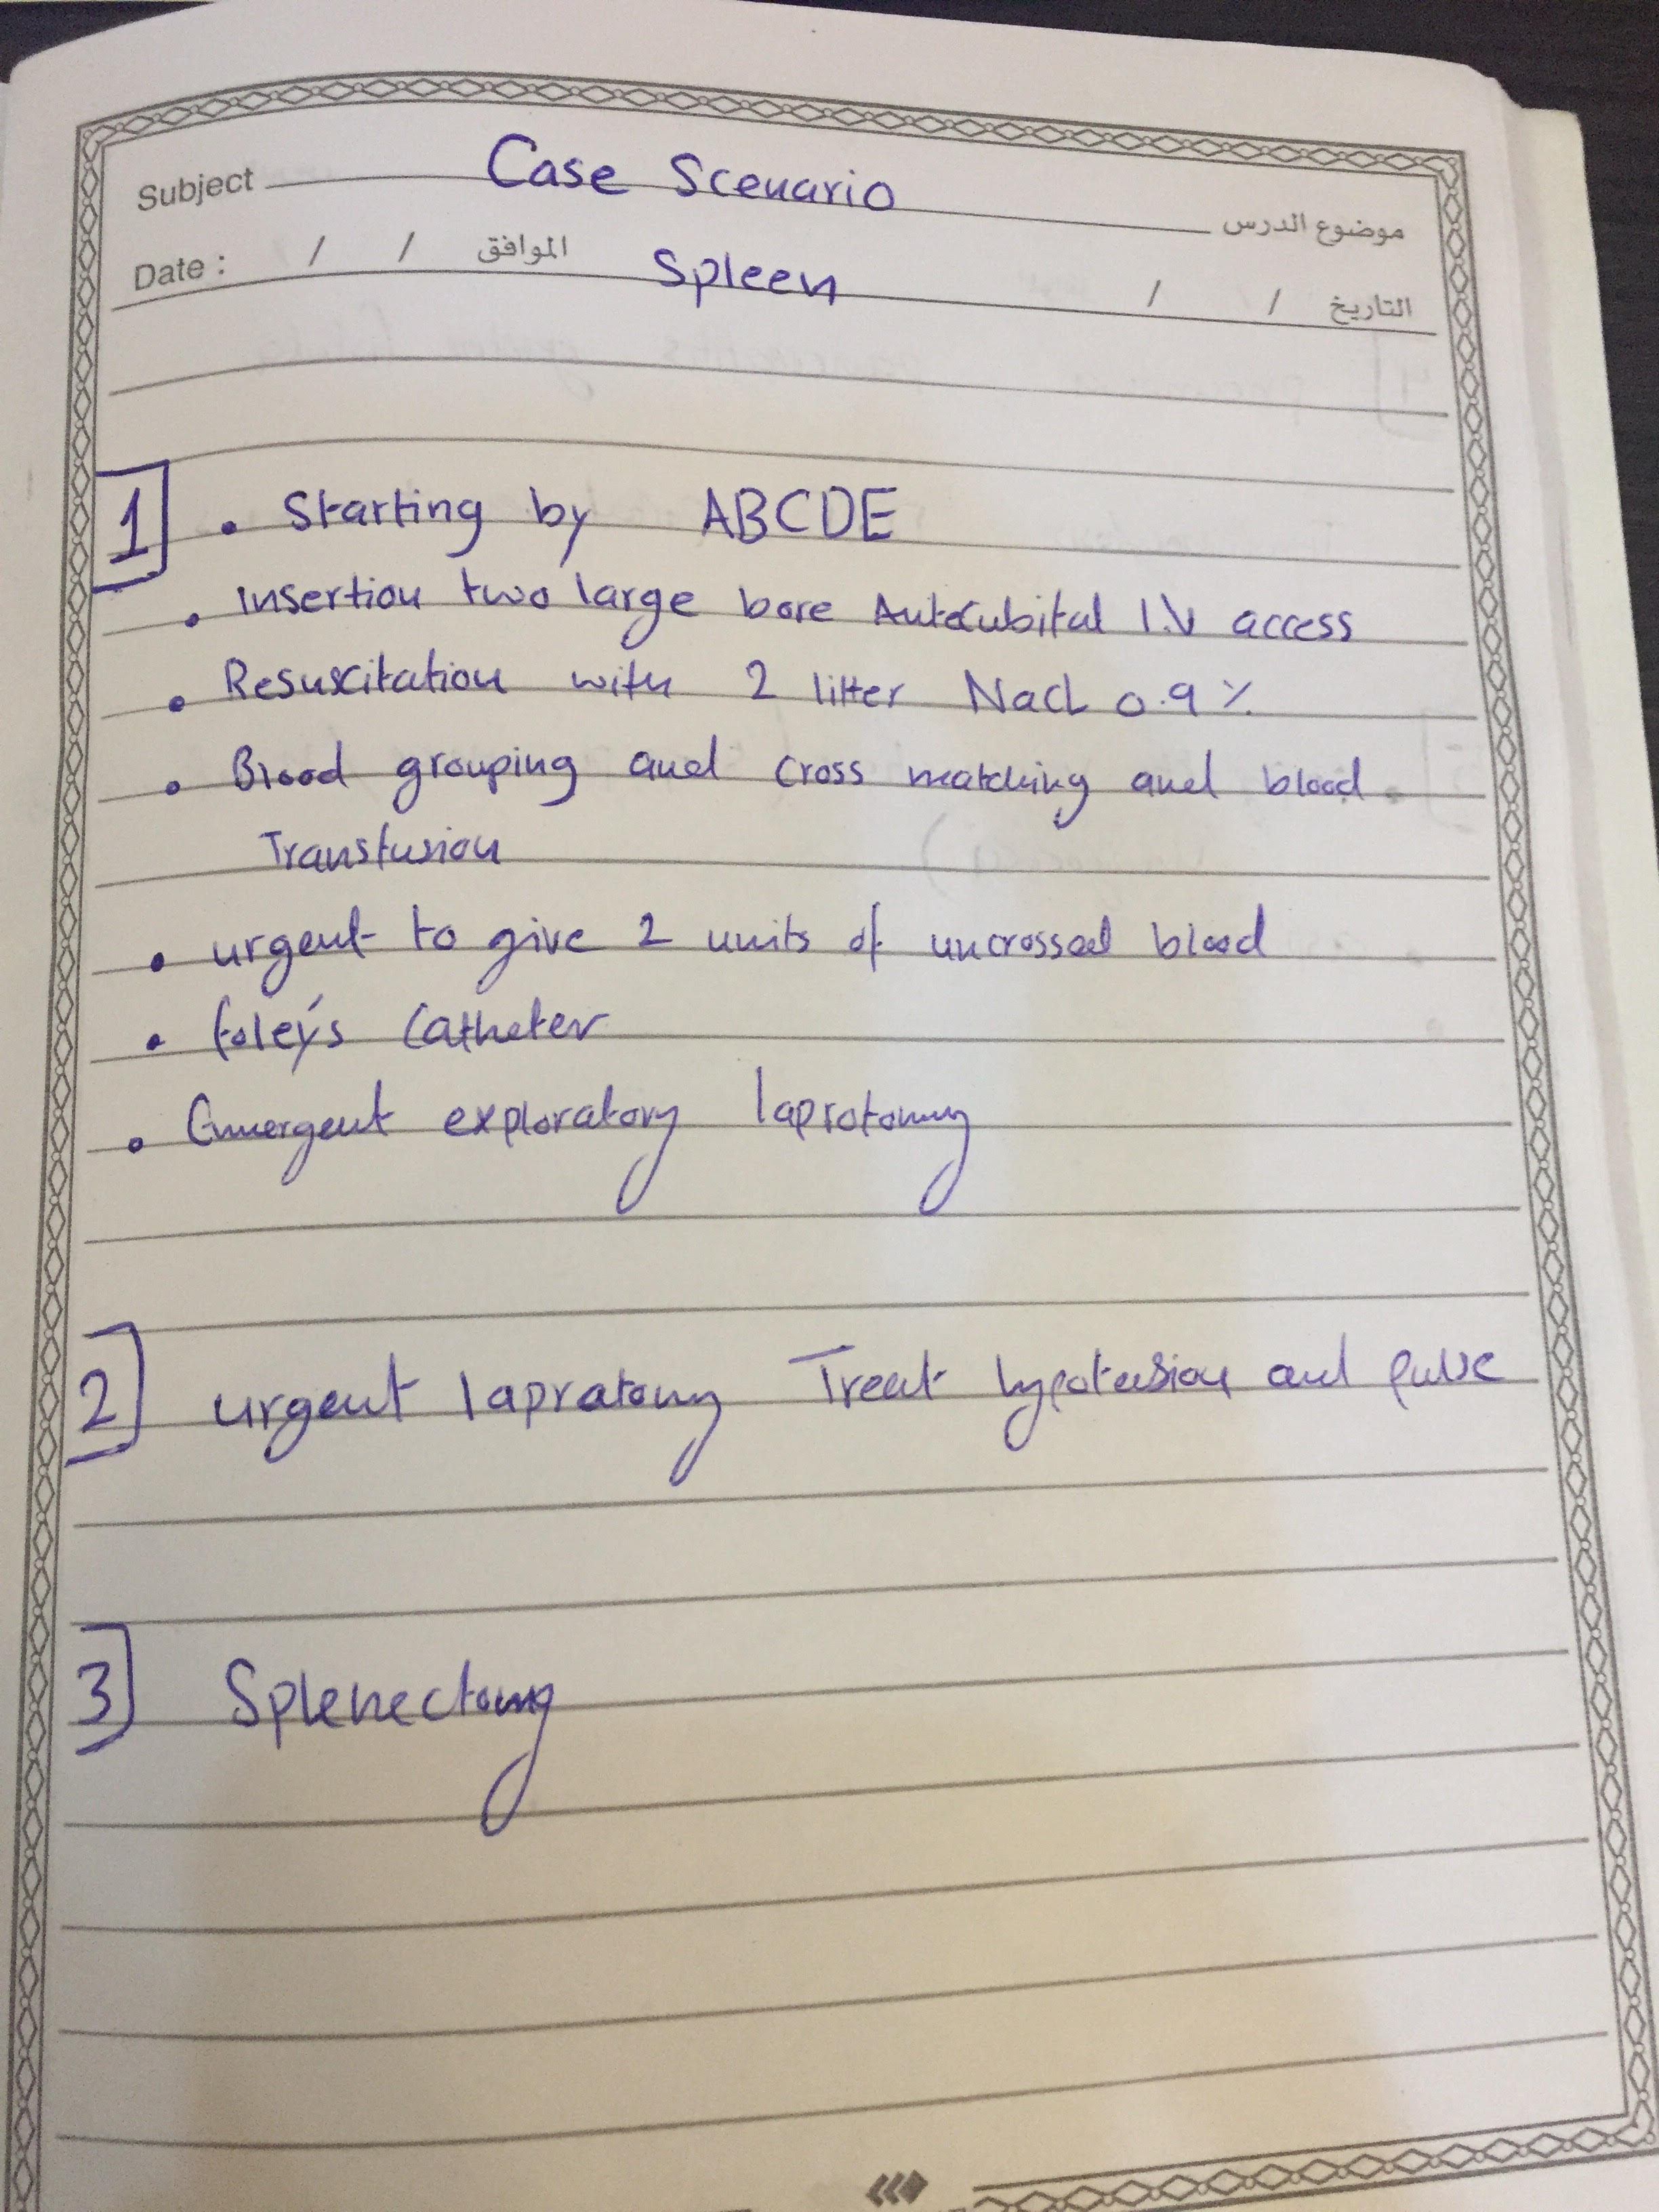 Subject Case Scenario موضوع الدرس
Date : / / الموافق Spleen / / التاريخ
1 • Starting by ABCDE
• insertion two large bore Antecubital I.V access
• Resuscitation with 2 litter NaCL 0.9 %
• Blood grouping and cross matching and blood
Transfusion
• urgent to give 2 units of uncrossed blood
• foley's Catheter
• Emergent exploratory laprotomy
2 urgent lapratomy Treat hypotension and pulse
3 Splenectomy